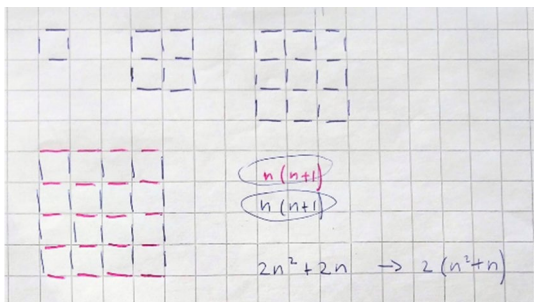 n(n+1)
n(n+1)
2n²+2n → 2(n²+n)